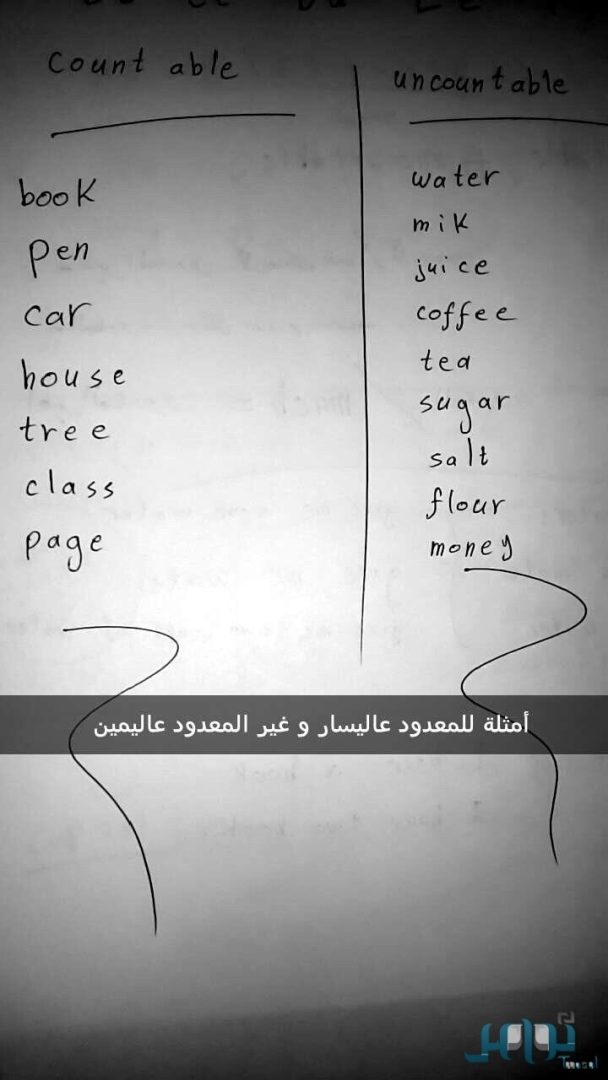 count able
uncountable
book
pen
car
house
tree
class
page
water
mik
juice
coffee
tea
sugar
salt
flour
money
أمثلة للمعدود عاليسار و غير المعدود عاليمين